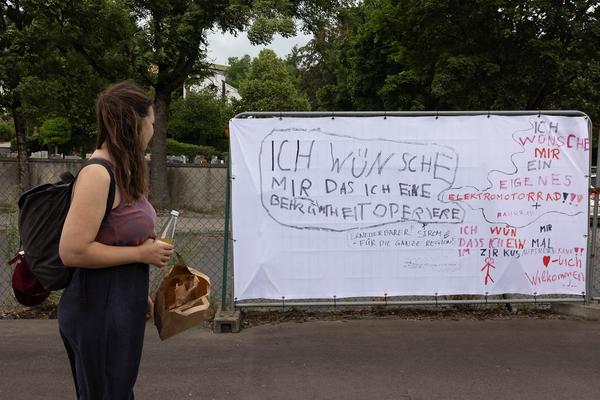 ICH WÜNSCHE
MIR DAS ICH EINE
BERÜHMTHEIT OPERIERE
ERNEUERBARER STROM
- FÜR DIE GANZE REGION
ICH
WÜNSCHE
MIR
EIN
EIGENES
ELEKTROMOTORRAD!!!
+
ICH WÜN MIR
DASS ICH EIN MAL
IM ZIRKUS AUFTRETEN KANN!!
♥-lich
Willkommen